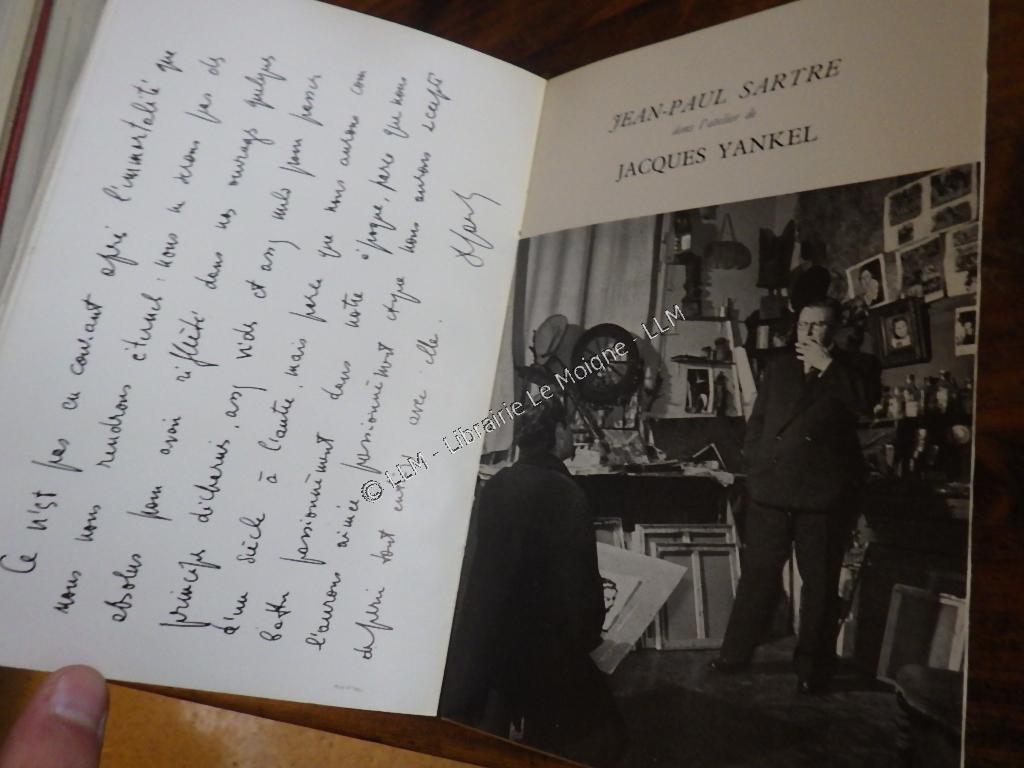 Ce n'est pas en courant après l'immortalité que
nous nous rendrons éternel : nous ne serons pas des
absolus pour avoir reflété dans nos ouvrages quelques
principes décharnés, assez vides et assez nuls pour passer
d'un siècle à l'autre, mais parce que nous aurons com
battu passionnément dans notre époque, parce que nous
l'aurons aimée passionnément et que nous aurons accepté
de périr tout entier avec elle.
JEAN-PAUL SARTRE
dans l'atelier de
JACQUES YANKEL
© LLM - Librairie Le Moigne - LLM